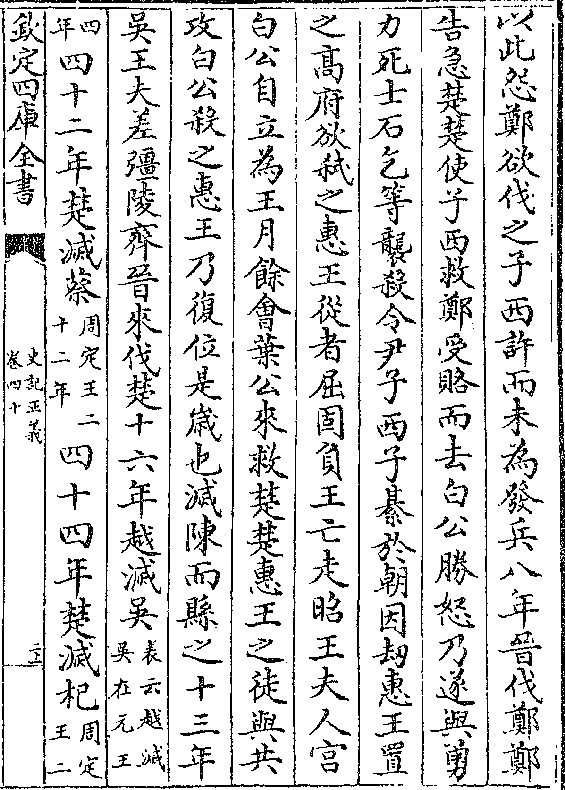 以此怨鄭欲伐之子西許而未為發兵八年晉伐鄭鄭
告急楚楚使子西救鄭受賂而去白公勝怒乃遂與勇
力死士石乞等襲殺令尹子西子綦於朝因刼惠王置
之髙府欲弑之惠王從者屈固負王亡走昭王夫人宮
白公自立為王月餘會葉公來救楚楚惠王之徒與共
攻白公殺之惠王乃復位是歲也滅陳而縣之十三年
吳王夫差彊陵齊晉來伐楚十六年越滅吳表云越滅
吳在元王
四
年四十二年楚滅蔡周定王二
十二年四十四年楚滅杞周定
王二
欽定四庫全書
史記正義
卷四十
二十二